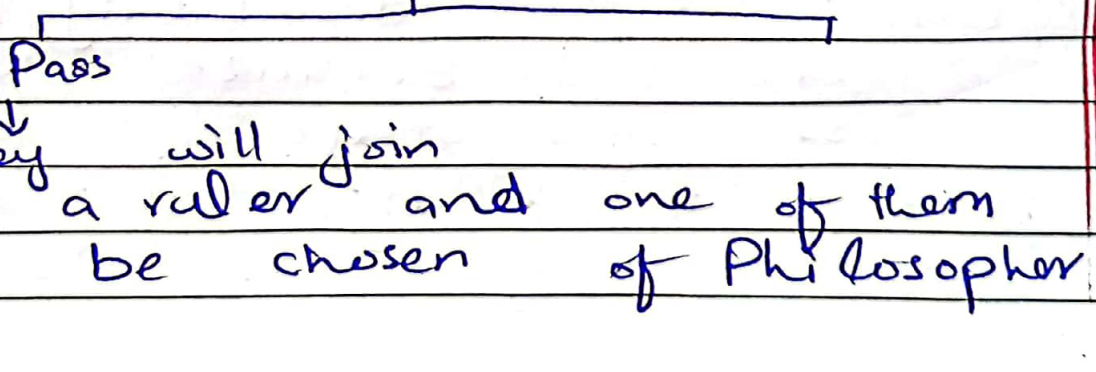 Pass
ey will join
a ruler and one of them
be chosen of Philosopher